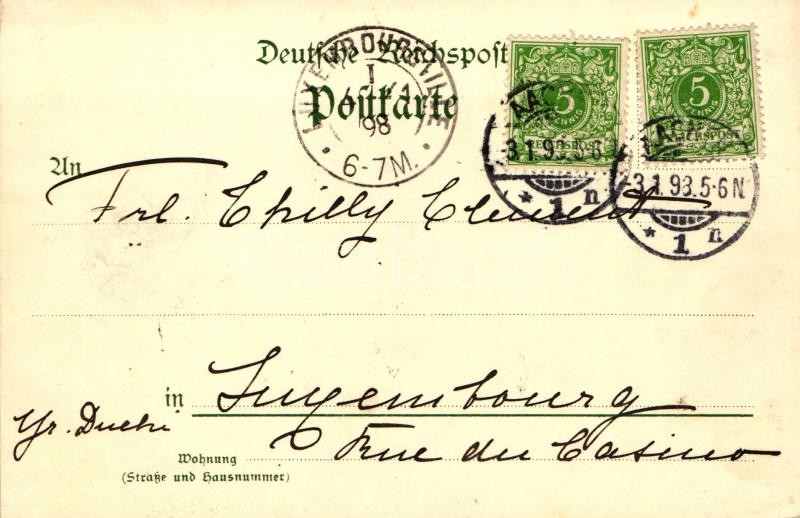 Deutsche Reichspost
Postkarte
LUXEMBOURG-VILLE
I
98
6-7M.
5
PFENNIG
REICHSPOST
5
PFENNIG
REICHSPOST
3.1.98.5-6N
* 1 n
3.1.98.5-6N
* 1 n
An
Frl. Chilly Clément
in Luxembourg
Gr. Duché
Rue du Casino
Wohnung
(Straße und Hausnummer)